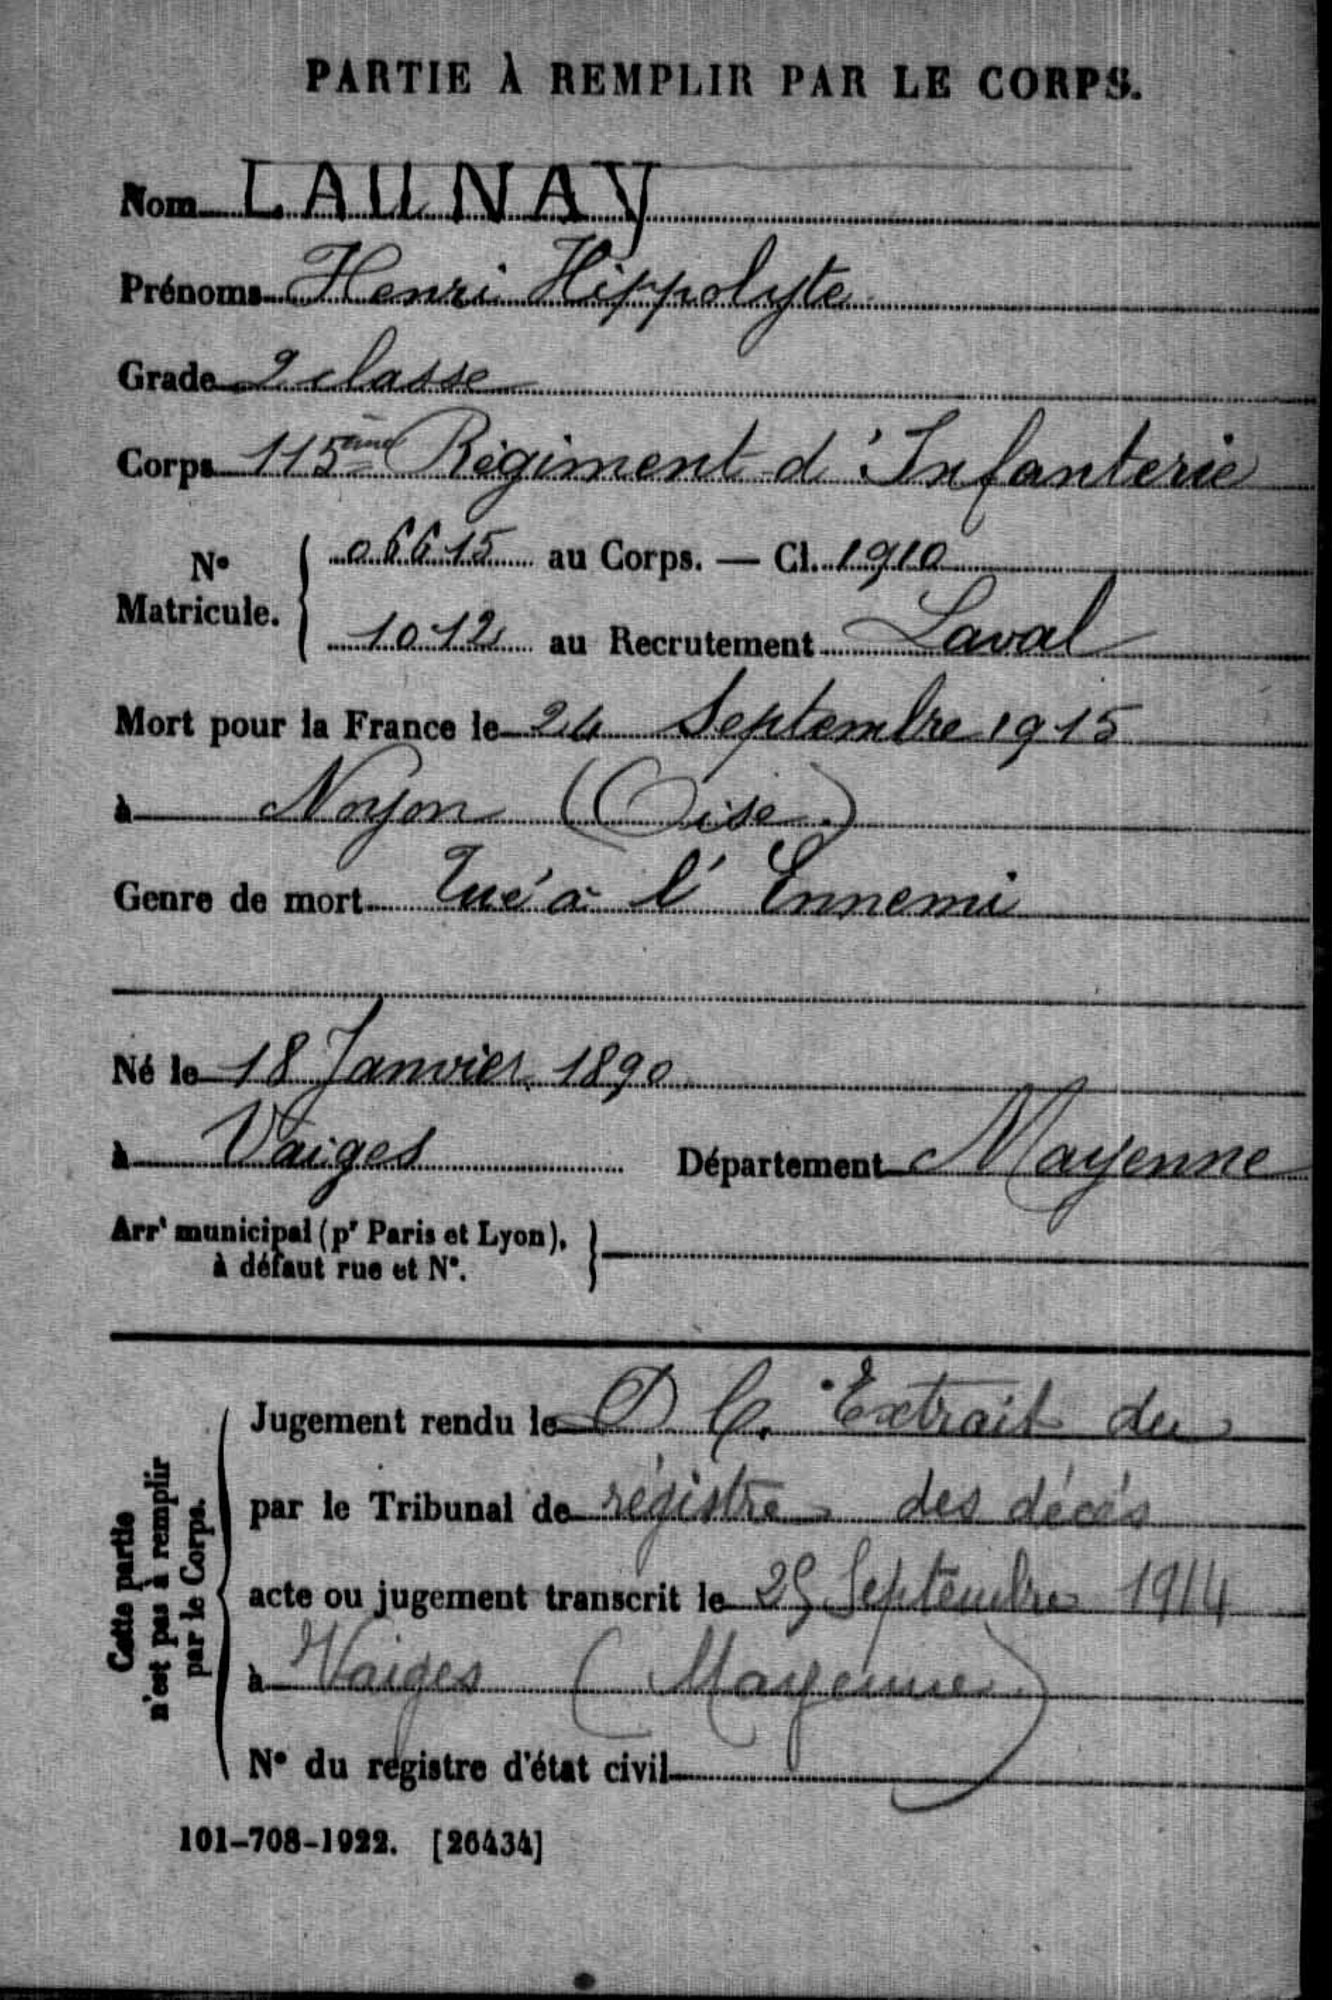 PARTIE À REMPLIR PAR LE CORPS.
Nom LAUNAY
Prénoms Henri Hippolyte
Grade 2 classe
Corps 115ème Régiment d'Infanterie
N° Matricule. 06615 au Corps. — Cl. 1910
1012 au Recrutement Laval
Mort pour la France le 24 Septembre 1915
à Noyon (Oise)
Genre de mort Tué à l'Ennemi
Né le 18 Janvier 1890
à Vaiges Département Mayenne
Arrt municipal (pr Paris et Lyon),
à défaut rue et N°.
Cette partie
n'est pas à remplir
par le Corps.
Jugement rendu le D C. Extrait du
par le Tribunal de régistre des décès
acte ou jugement transcrit le 25 Septembre 1914
à Vaiges (Mayenne)
N° du registre d'état civil
101-708-1922. [26434]